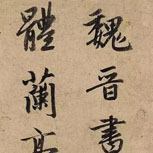 魏晉書
體蘭亭